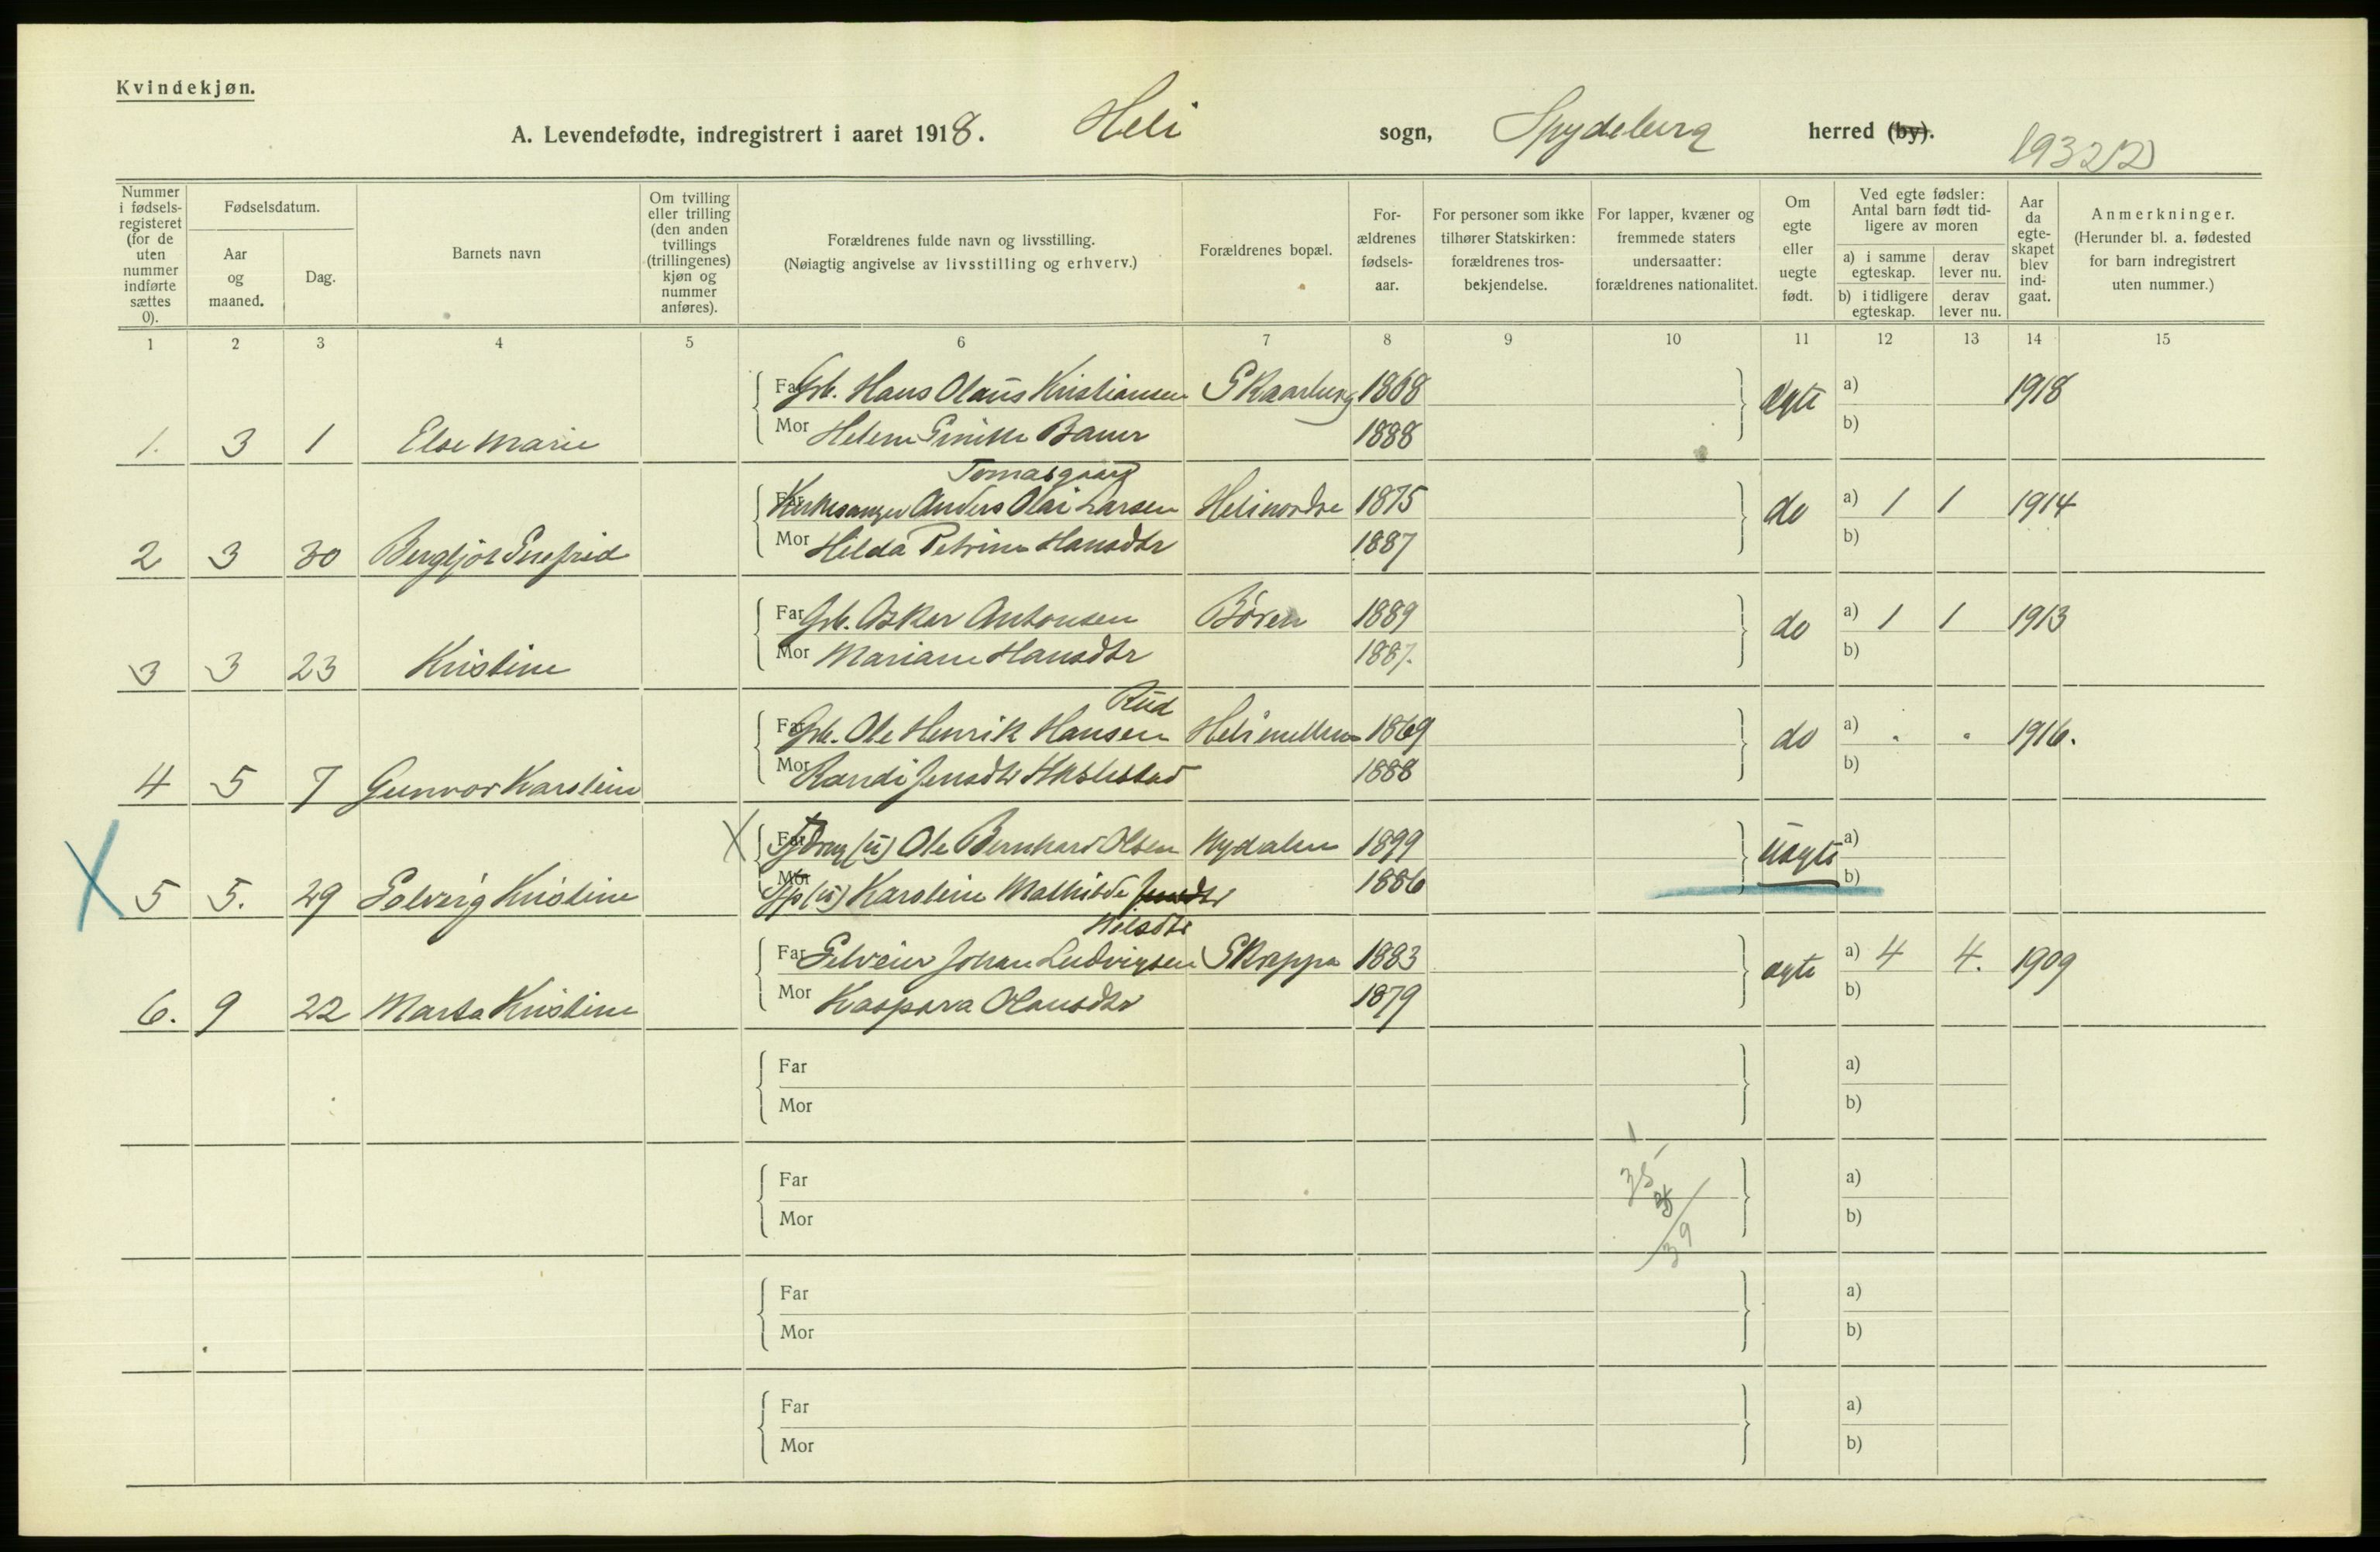 Kvindekjøn.
A. Levendefødte, indregistrert i aaret 1918. Heli sogn, Spydeberg herred (by).
Nummer i fødselsregisteret (for de uten nummer indførte sættes 0).
Fødselsdatum.
Aar og maaned.
Dag.
Barnets navn
Om tvilling eller trilling (den anden tvillings (trillingenes) kjøn og nummer anføres).
Forældrenes fulde navn og livsstilling.
(Nøiagtig angivelse av livsstilling og erhverv.)
Forældrenes bopæl.
For-ældrenes fødsels-aar.
For personer som ikke tilhører Statskirken: forældrenes tros-bekjendelse.
For lapper, kvæner og fremmede staters undersaatter: forældrenes nationalitet.
Om egte eller uegte født.
Ved egte fødsler: Antal barn født tid-ligere av moren
a) i samme egteskap.
derav lever nu.
b) i tidligere egteskap.
derav lever nu.
Aar da egte-skapet blev ind-gaat.
Anmerkninger.
(Herunder bl. a. fødested for barn indregistrert uten nummer.)
1 2 3 4 5 6 7 8 9 10 11 12 13 14 15
Far Grb. Hans Olaus Kristiansen Skaarberg 1868 Ægte a) 1918
1. 3 1 Else Marie Mor Helene Bauer 1888 b)
Tomasgaard
Far Kirkesanger Anders Olai Larsen Heli nordre 1875 do a) 1 1 1914
2 3 30 Bergljot Mor Hilda Petrine Hansdtr 1887 b)
Far Grb. Oskar Antonsen Børen 1889 do a) 1 1 1913
3 3 23 Kristine Mor Mariane Hansdtr 1887. b)
Rud
Far Grb. Ole Henrik Hansen Heli mellem 1869 do a) 1916.
4 5 7 Gunvor Karoline Mor Randi Jensdtr 1888 b)
X Far (ú) Ole Bernhard Olsen Nydalen 1899 Uægte a)
X 5 5. 29 Solveig Kristine Mor (ú) Karoline Mathilde 1886 b)
Nilsdtr
Far Selveier Johan Ludvigsen Skrappa 1883 ægte a) 4 4. 1909
6. 9 22 Marta Kristine Mor Kaspara Olausdtr 1879 b)
Far a)
Mor b)
1
35
Far a)
Mor b)
39
Far a)
Mor b)
Far a)
Mor b)